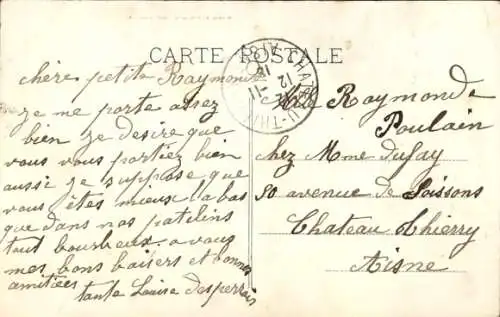 CARTE POSTALE
chère petite Raymonde
je me porte assez
bien je desire que
vous vous portiez bien
aussi je suppose que
vous êtes mieux labas
que dans nos patelins
tout bourbeux. a vous
mes bons baisers et bonnes
amitiées
tante Louise Desperrois
Raymonde
Poulain
chez Mme Dufay
50 avenue de Soissons
Chateau Thierry
Aisne